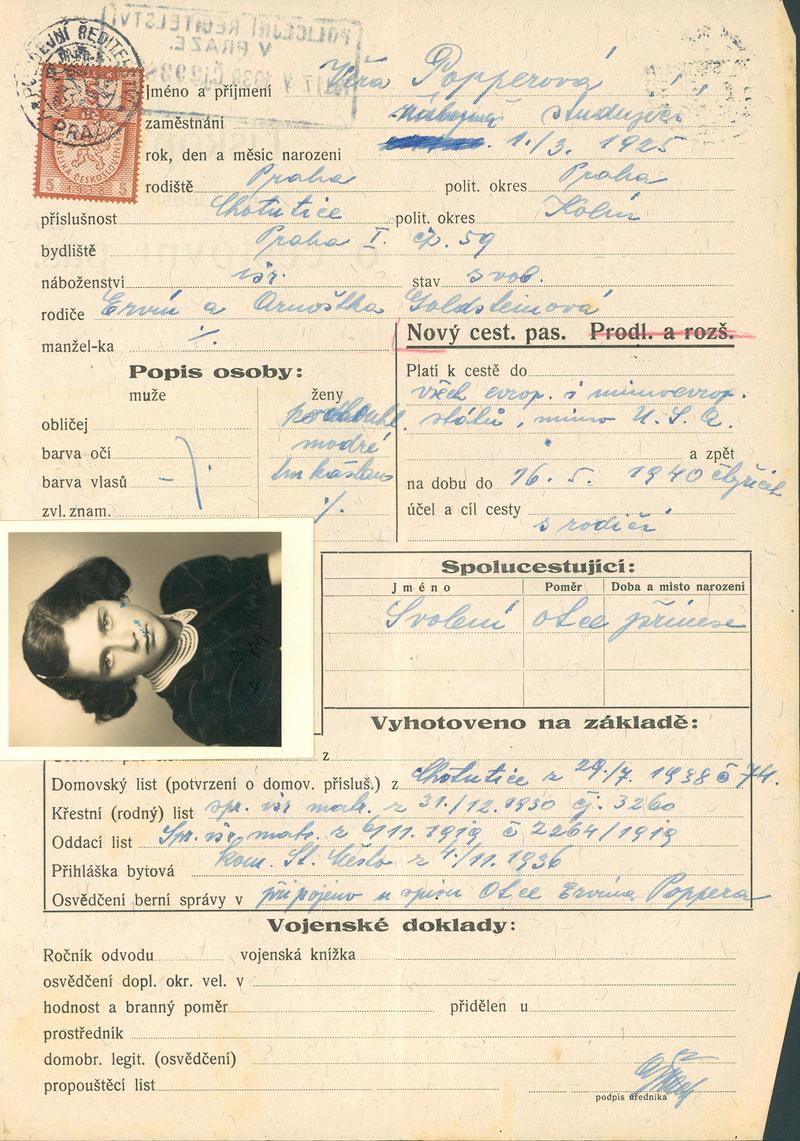 POLICEJNÍ ŘEDITELSTVÍ
V PRAZE
POLICEJNÍ ŘEDITELSTVÍ
PRAHA
5
5 1938 5
Jméno a příjmení Věra Popperová
zaměstnání studující
rok, den a měsíc narození 1./3. 1925
rodiště Praha polit. okres Praha
příslušnost Chotutice polit. okres Kolín
bydliště Praha I. čp. 59
náboženství isr. stav svob.
rodiče Ervín a Arnoštka Goldsteinová
manžel-ka ./.
Nový cest. pas. Prodl. a rozš.
Popis osoby:
muže ženy
obličej podlouhl.
barva očí modré
barva vlasů tm kaštan
zvl. znam. ./.
Platí k cestě do
všech evrop. i mimoevrop.
států, mimo U. S. A.
a zpět
na dobu do 16. 5. 1940 čtyřicet
účel a cíl cesty
s rodiči
Spolucestující:
Jméno Poměr Doba a misto narození
Svolení otce přinese
Vyhotoveno na základě:
z
Domovský list (potvrzení o domov. přísluš.) z Chotutice z 29./7. 1938 č 74.
Křestní (rodný) list spr. isr matr. z 31./12.1930 čj. 3260
Oddací list Spr. isr. matr. z 6/11.1919 č 2264/1919
Přihláška bytová kom. St. Město z 1./11.1936
Osvědčení berní správy v připojeno u spisu Otce Ervína Poppera
Vojenské doklady:
Ročník odvodu vojenská knížka
osvědčení dopl. okr. vel. v
hodnost a branný poměr přidělen u
prostředník
domobr. legit. (osvědčení)
propouštěcí list
podpis úředníka